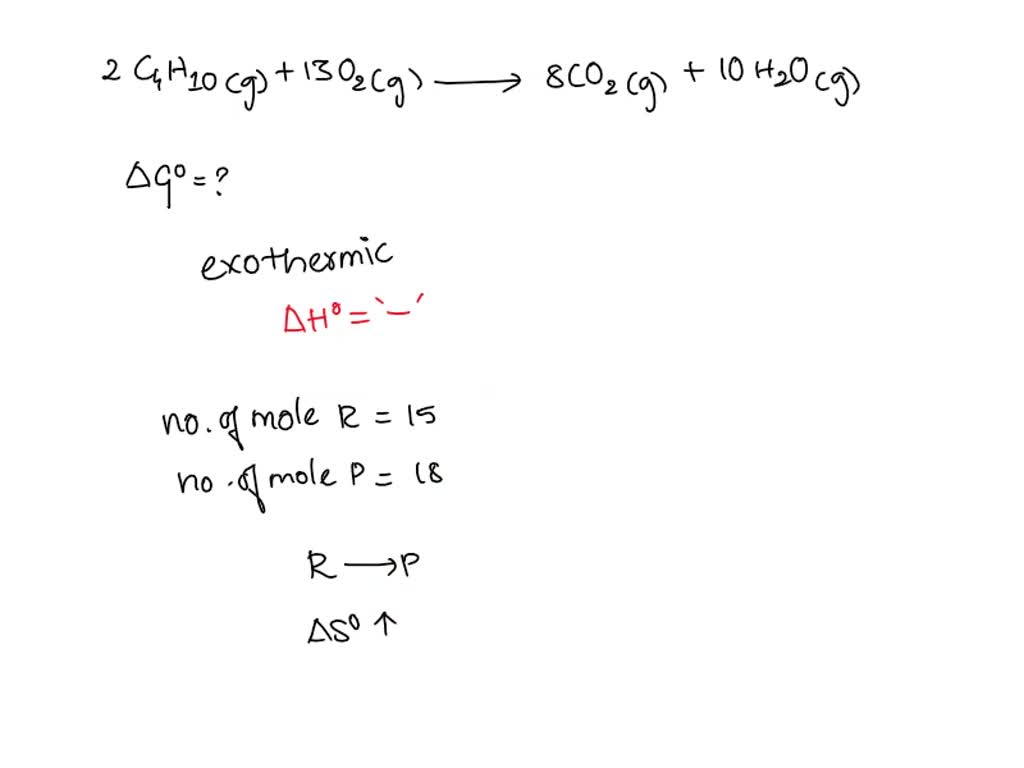 2 C4H10 (g) + 13 O2 (g) ⟶ 8CO2 (g) + 10 H2O (g)
ΔG° = ?
exothermic
ΔH° = '−'
no. of mole R = 15
no. of mole P = 18
R ⟶ P
ΔS° ↑